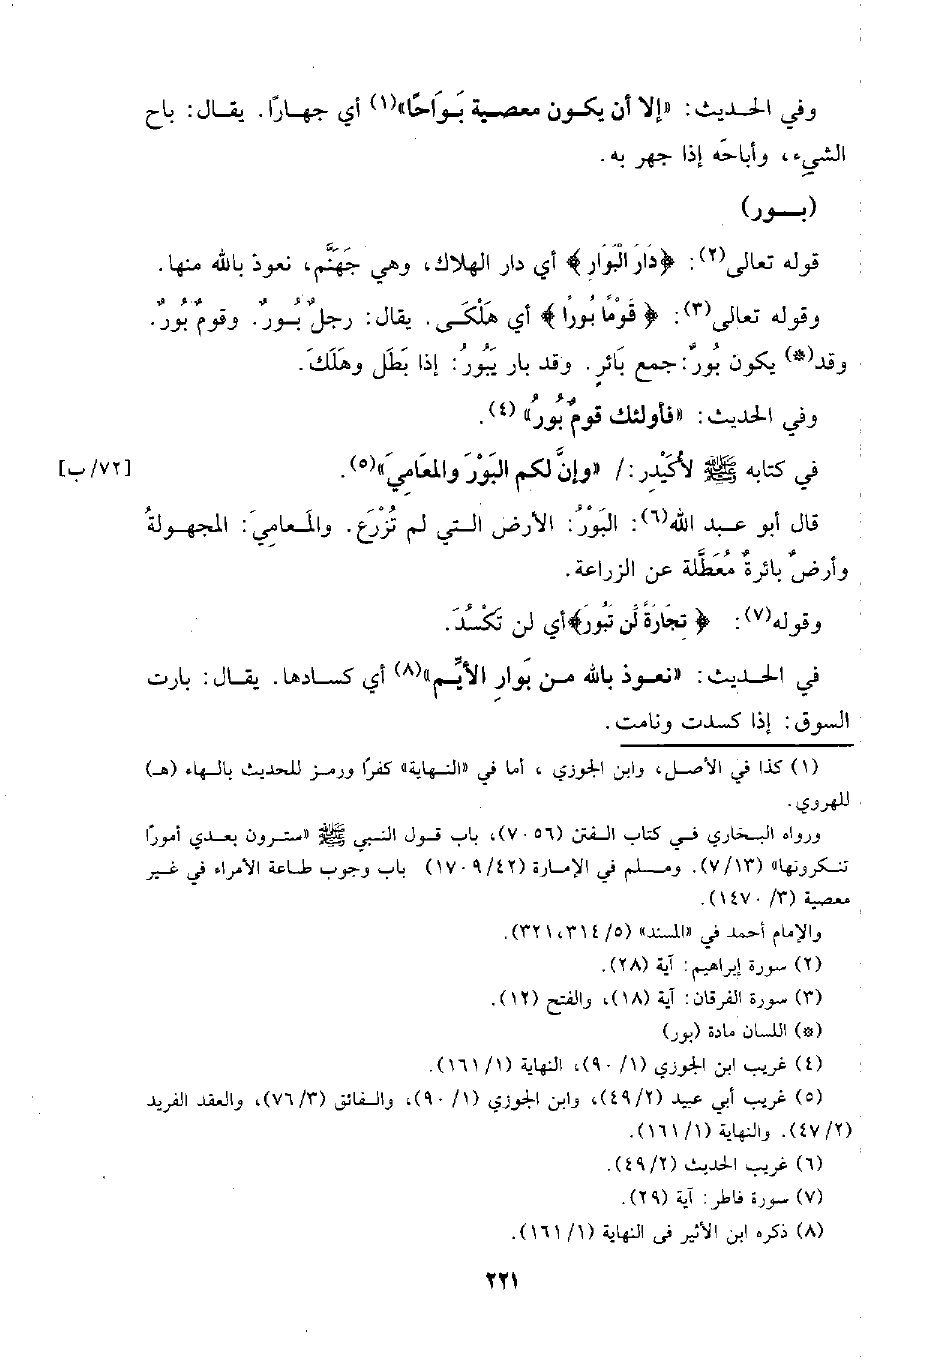 وفي الحديث: «إلا أن يكون معصية بَوَاحًا»(١) أي جهارًا. يقال: باح
الشيءِ، وأباحَه إذا جهر به.
(بور)
قوله تعالى(٢): ﴿دَارَ الْبَوَارِ﴾ أي دار الهلاك، وهي جَهَنَّم، نعوذ بالله منها.
وقوله تعالى(٣): ﴿قَوْمًا بُورًا﴾ أي هَلْكَى. يقال: رجلٌ بُورٌ. وقومٌ بُورٌ.
وقد(*) يكون بُورٌ: جمع بَائرٍ. وقد بار يَبُورُ: إذا بَطَل وهَلَكَ.
وفي الحديث: «فأولئك قومٌ بُورٌ» (٤).
في كتابه ﷺ لأُكَيْدِر:/ «وإنَّ لكم البَوْرَ والمعَامِيَ»(٥). [٧٢/ب]
قال أبو عبد الله(٦): البَوْرُ: الأرض التي لم تُزْرَع. والمَعامِيَ: المجهولةُ
وأرضٌ بائرةٌ مُعَطَّلة عن الزراعة.
وقوله(٧): ﴿تِجَارَةً لَّن تَبُورَ﴾أي لن تَكْسُدَ.
في الحديث: «نعوذ بالله من بَوارِ الأيِّم»(٨) أي كسادها. يقال: بارت
السوق: إذا كسدت ونامت.
(١) كذا في الأصل، وابن الجوزي ، أما في «النهاية» كفرًا ورمز للحديث بالهاء (هـ)
للهروي.
ورواه البخاري في كتاب الفتن (٧٠٥٦)، باب قول النبي ﷺ «سترون بعدي أمورًا
تنكرونها» (٧/١٣). ومسلم في الإمارة (١٧٠٩/٤٢) باب وجوب طاعة الأمراء في غير
معصية (١٤٧٠/٣).
والإمام أحمد في «المسند» (٣٢١،٣١٤/٥).
(٢) سورة إبراهيم: آية (٢٨).
(٣) سورة الفرقان: آية (١٨)، والفتح (١٢).
(*) اللسان مادة (بور)
(٤) غريب ابن الجوزي (٩٠/١)، النهاية (١٦١/١).
(٥) غريب أبي عبيد (٤٩/٢)، وابن الجوزي (٩٠/١)، والفائق (٧٦/٣)، والعقد الفريد
(٤٧/٢). والنهاية (١٦١/١).
(٦) غريب الحديث (٤٩/٢).
(٧) سورة فاطر: آية (٢٩).
(٨) ذكره ابن الأثير في النهاية (١٦١/١).
٢٢١